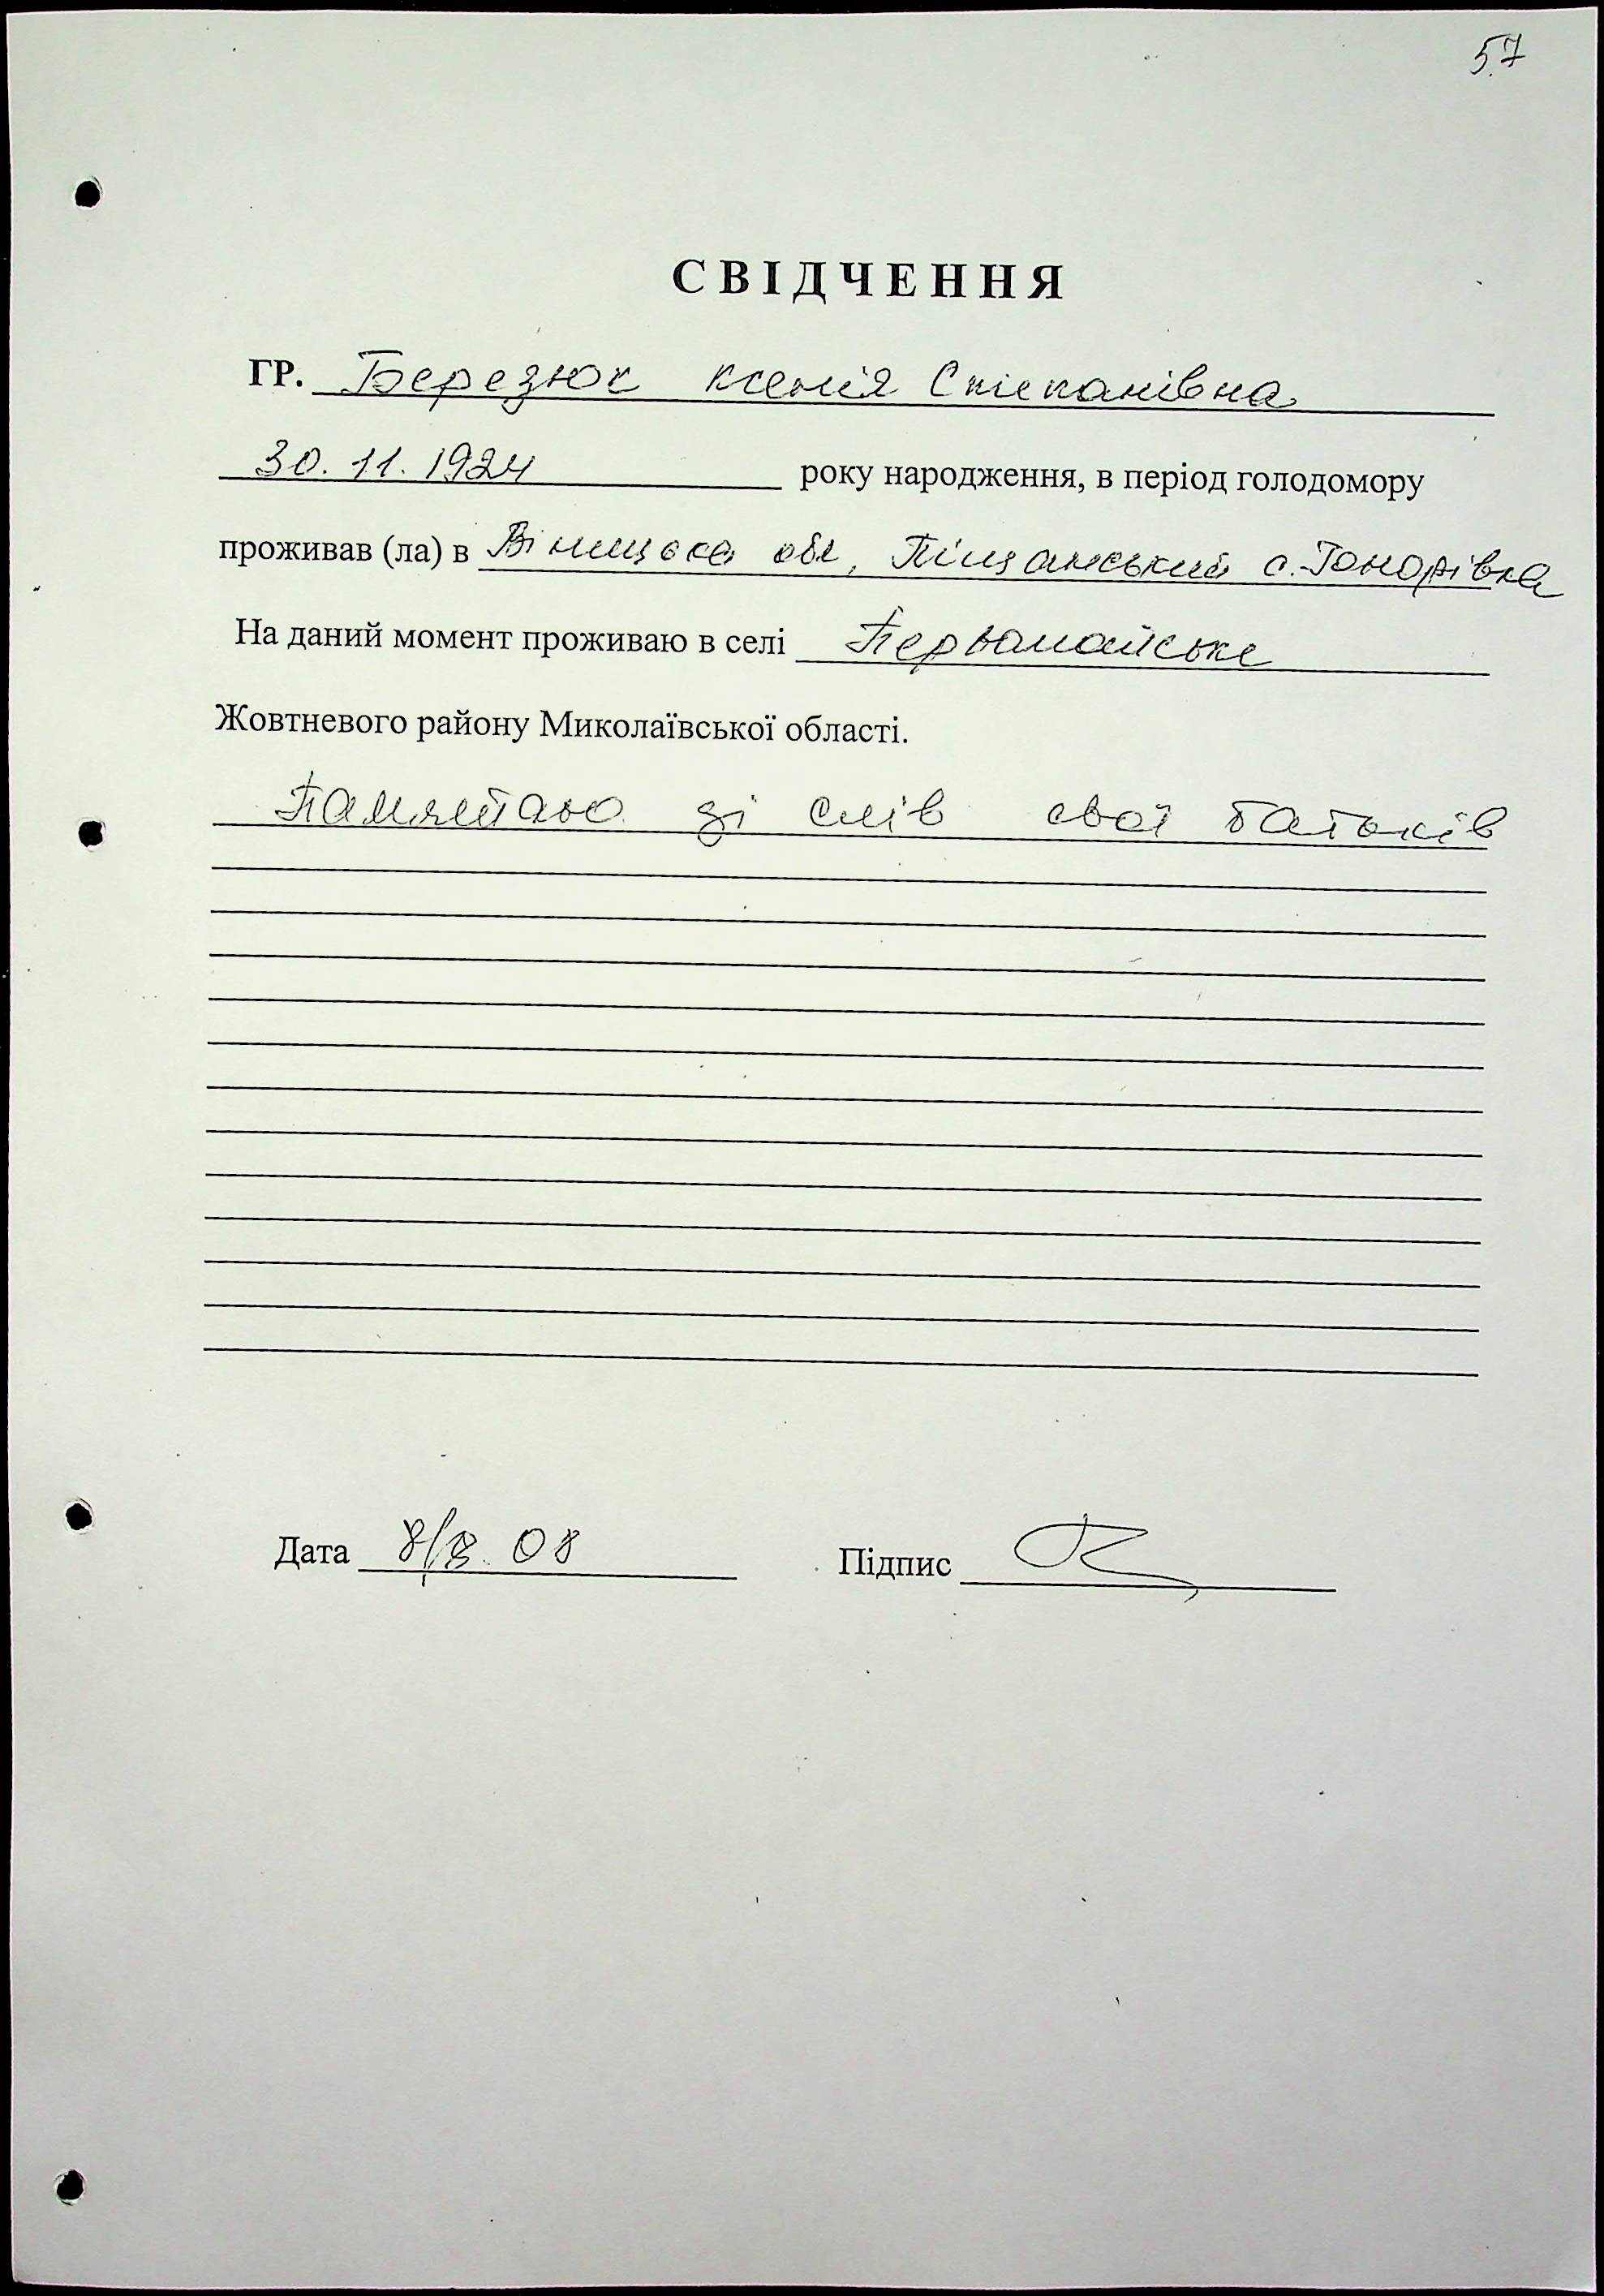 57
СВІДЧЕННЯ
ГР. Березюк Ксенія Степанівна
30.11.1924 року народження, в період голодомору
проживав (ла) в Вінницька обл, Піщанський с. Гонорівка
На даний момент проживаю в селі Первомайське
Жовтневого району Миколаївської області.
Памятаю зі слів свої батьків
Дата 8/8. 08 Підпис